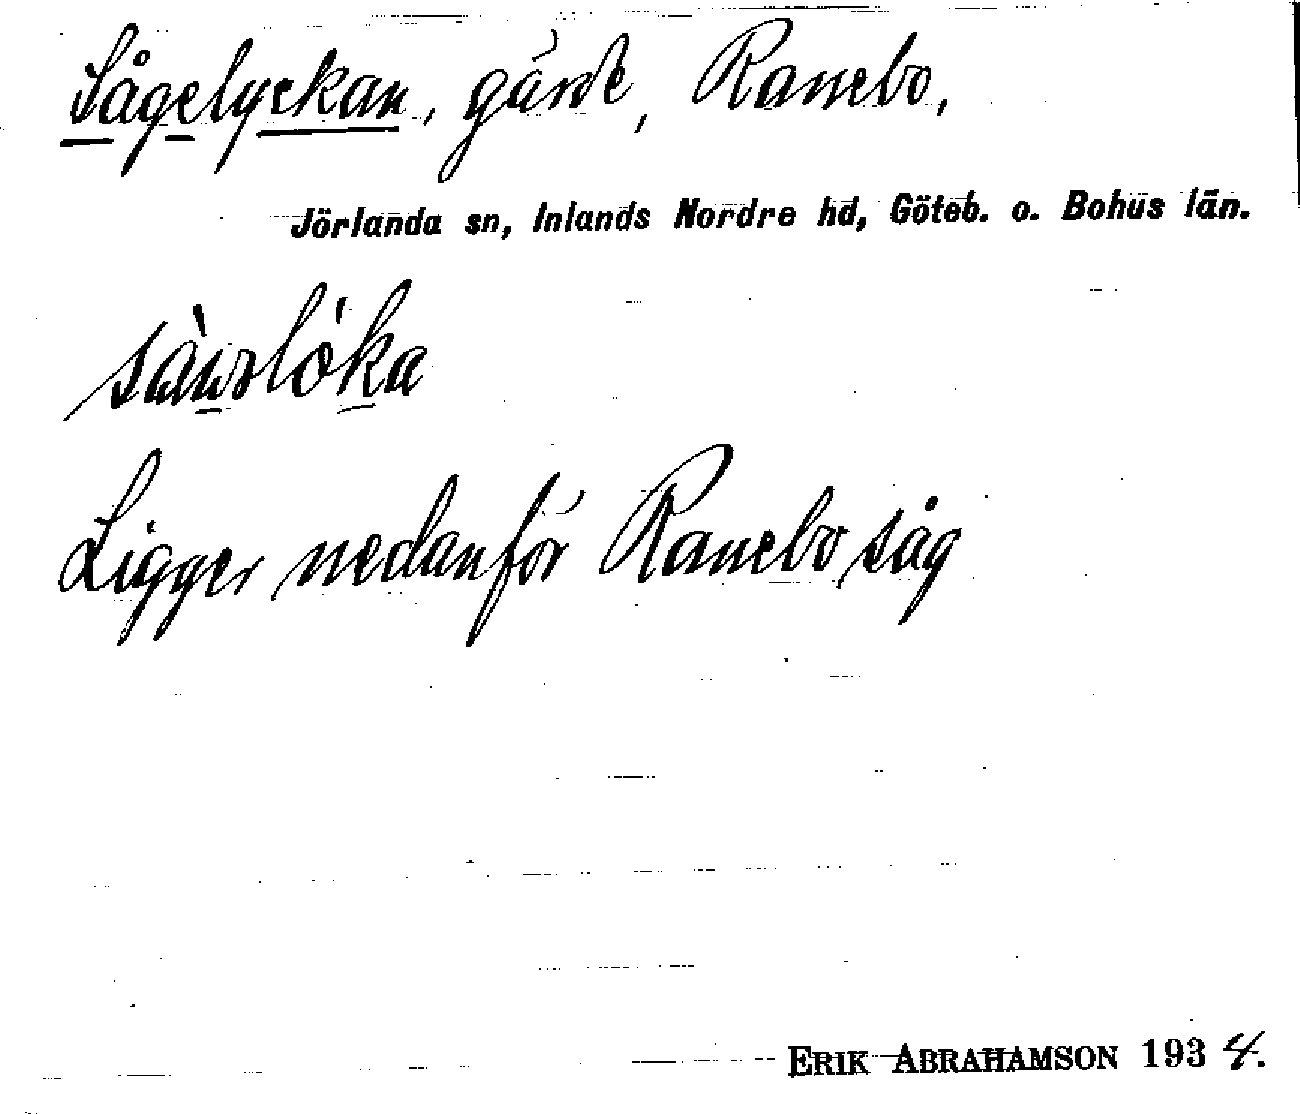 Sågelyckan, gärde, Ranebo,
Jörlanda sn, Inlands Nordre hd, Göteb. o. Bohus län.
Ligger nedanför Ranebo såg
ERIK ABRAHAMSON 1934.